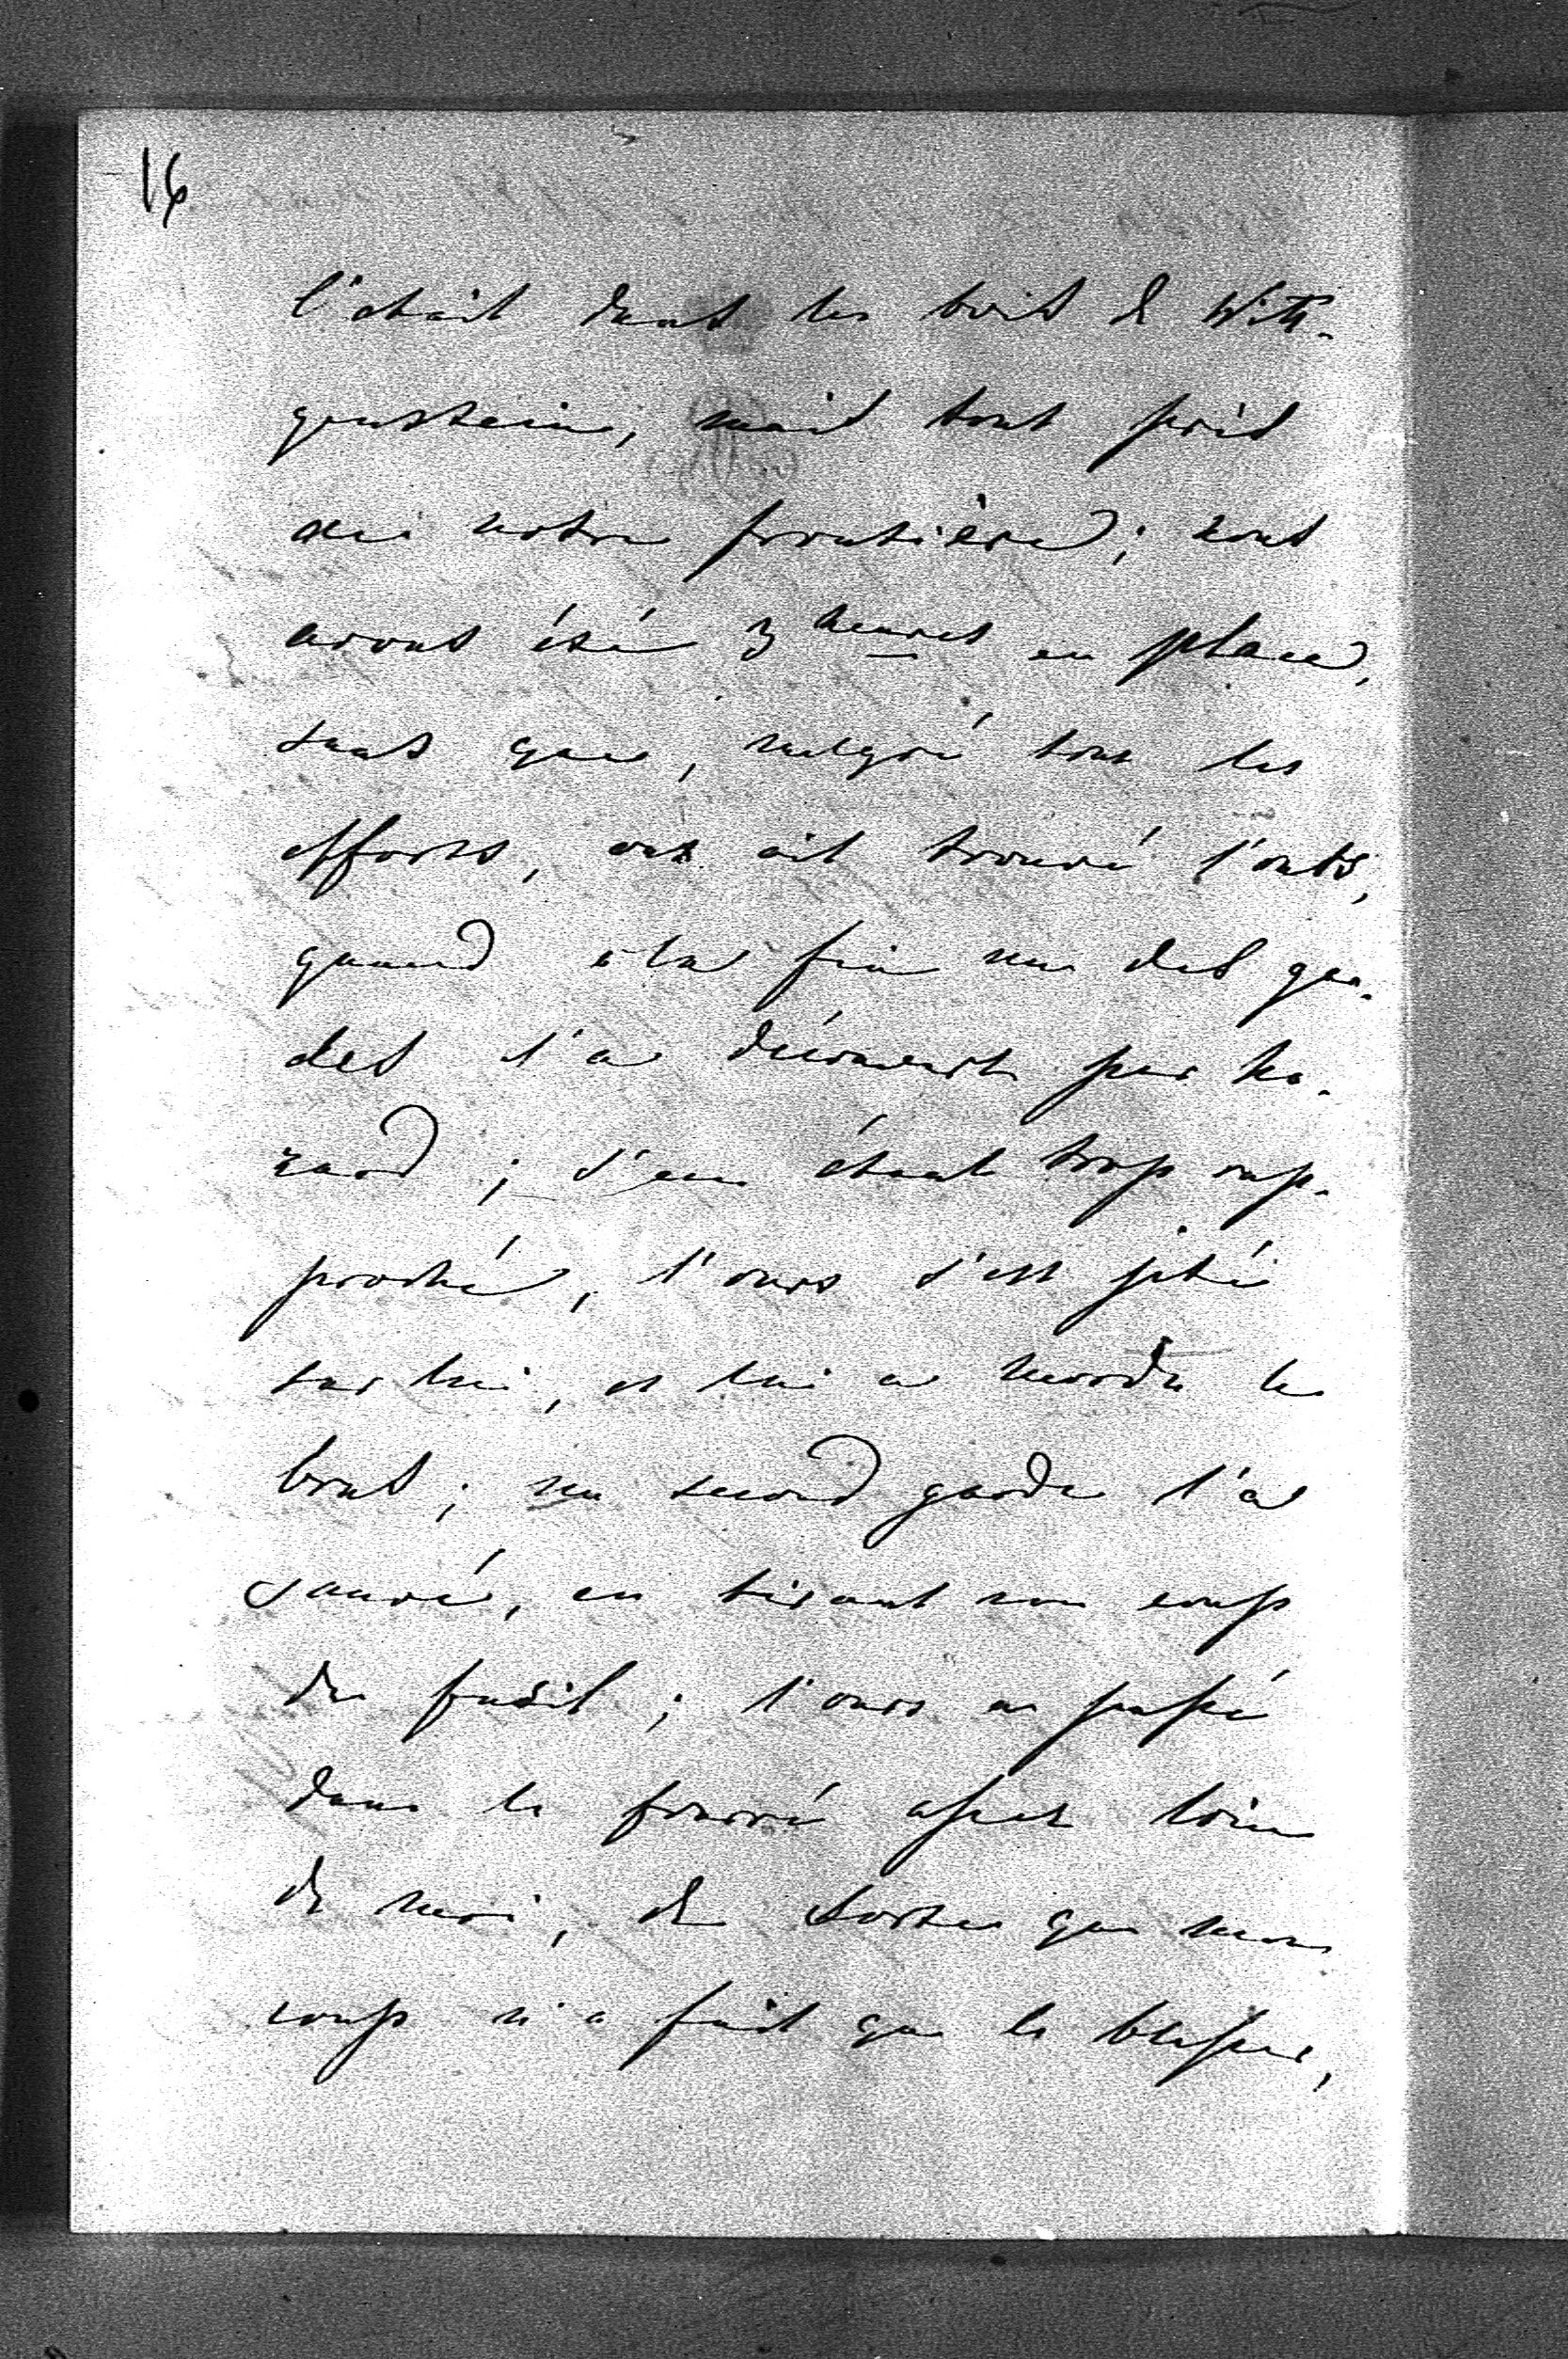 16
C'était dans les bois de Witt-
genstein, mais tout près
de notre frontière; nous
avons été 3 heures en place,
sans que, malgré tous les
efforts, on ait trouvé l'ours,
quand à la fin un des gar-
des l'a découvert par ha-
zard; s'en étant trop rap-
proché, l'ours s'est jeté
sur lui, et lui a mordu le
bras; un second garde l'a
sauvé, en tirant son coup
de fusil; l'ours a passé
dans le fourré assez loin
de moi, de sorte que mon
coup n'a fait que le blesser,